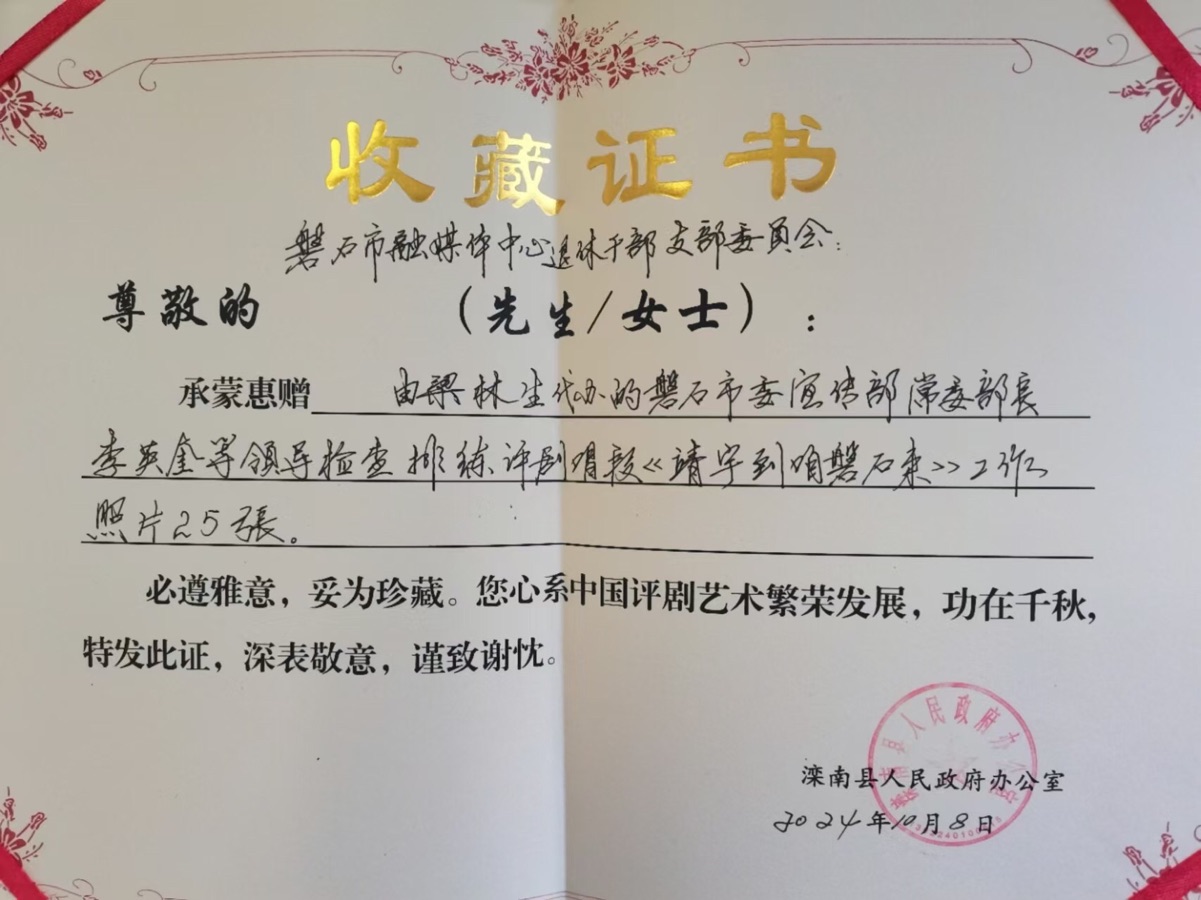 收藏证书
磐石市融媒体中心退休干部支部委员会：
尊敬的（先生/女士）：
承蒙惠赠 由梁林生代办的磐石市委宣传部常委部长
李英奎等领导检查排练评剧唱段《靖宇到咱磐石来》工作
照片25張。
必遵雅意，妥为珍藏。您心系中国评剧艺术繁荣发展，功在千秋，
特发此证，深表敬意，谨致谢忱。
滦南县人民政府办公室
滦南县人民政府办公室
2024年10月8日